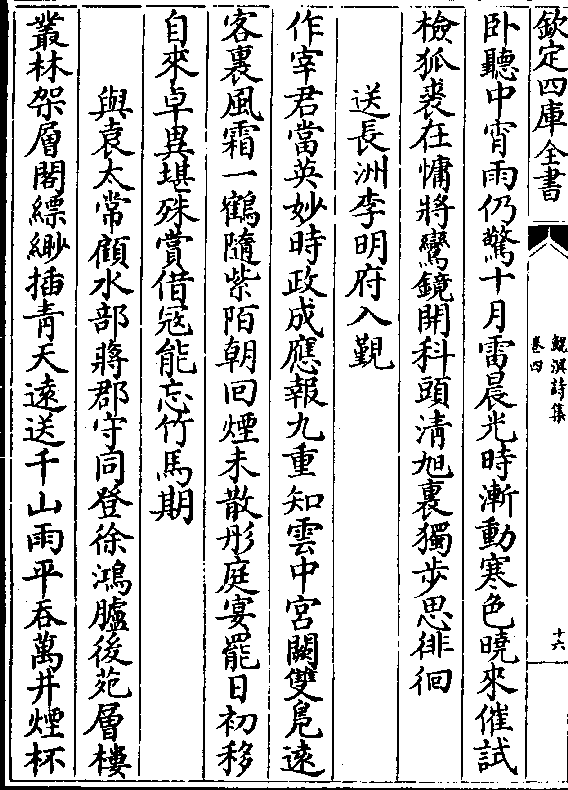 欽定四庫全書
鯤溟詩集
卷四
十六
卧聽中宵雨仍驚十月雷晨光時漸動寒色曉來催試
檢狐裘在慵將鸞鏡開科頭清旭裏獨步思徘徊
送長洲李明府入覲
作宰君當英妙時政成應報九重知雲中宮闕雙鳬遠
客裏風霜一鶴隨紫陌朝回煙未散彤庭宴罷日初移
自來卓異堪殊賞借冦能忘竹馬期
與袁太常顧水部蔣郡守同登徐鴻臚後苑層樓
叢林架層閣縹緲插青天遠送千山雨平吞萬井煙杯